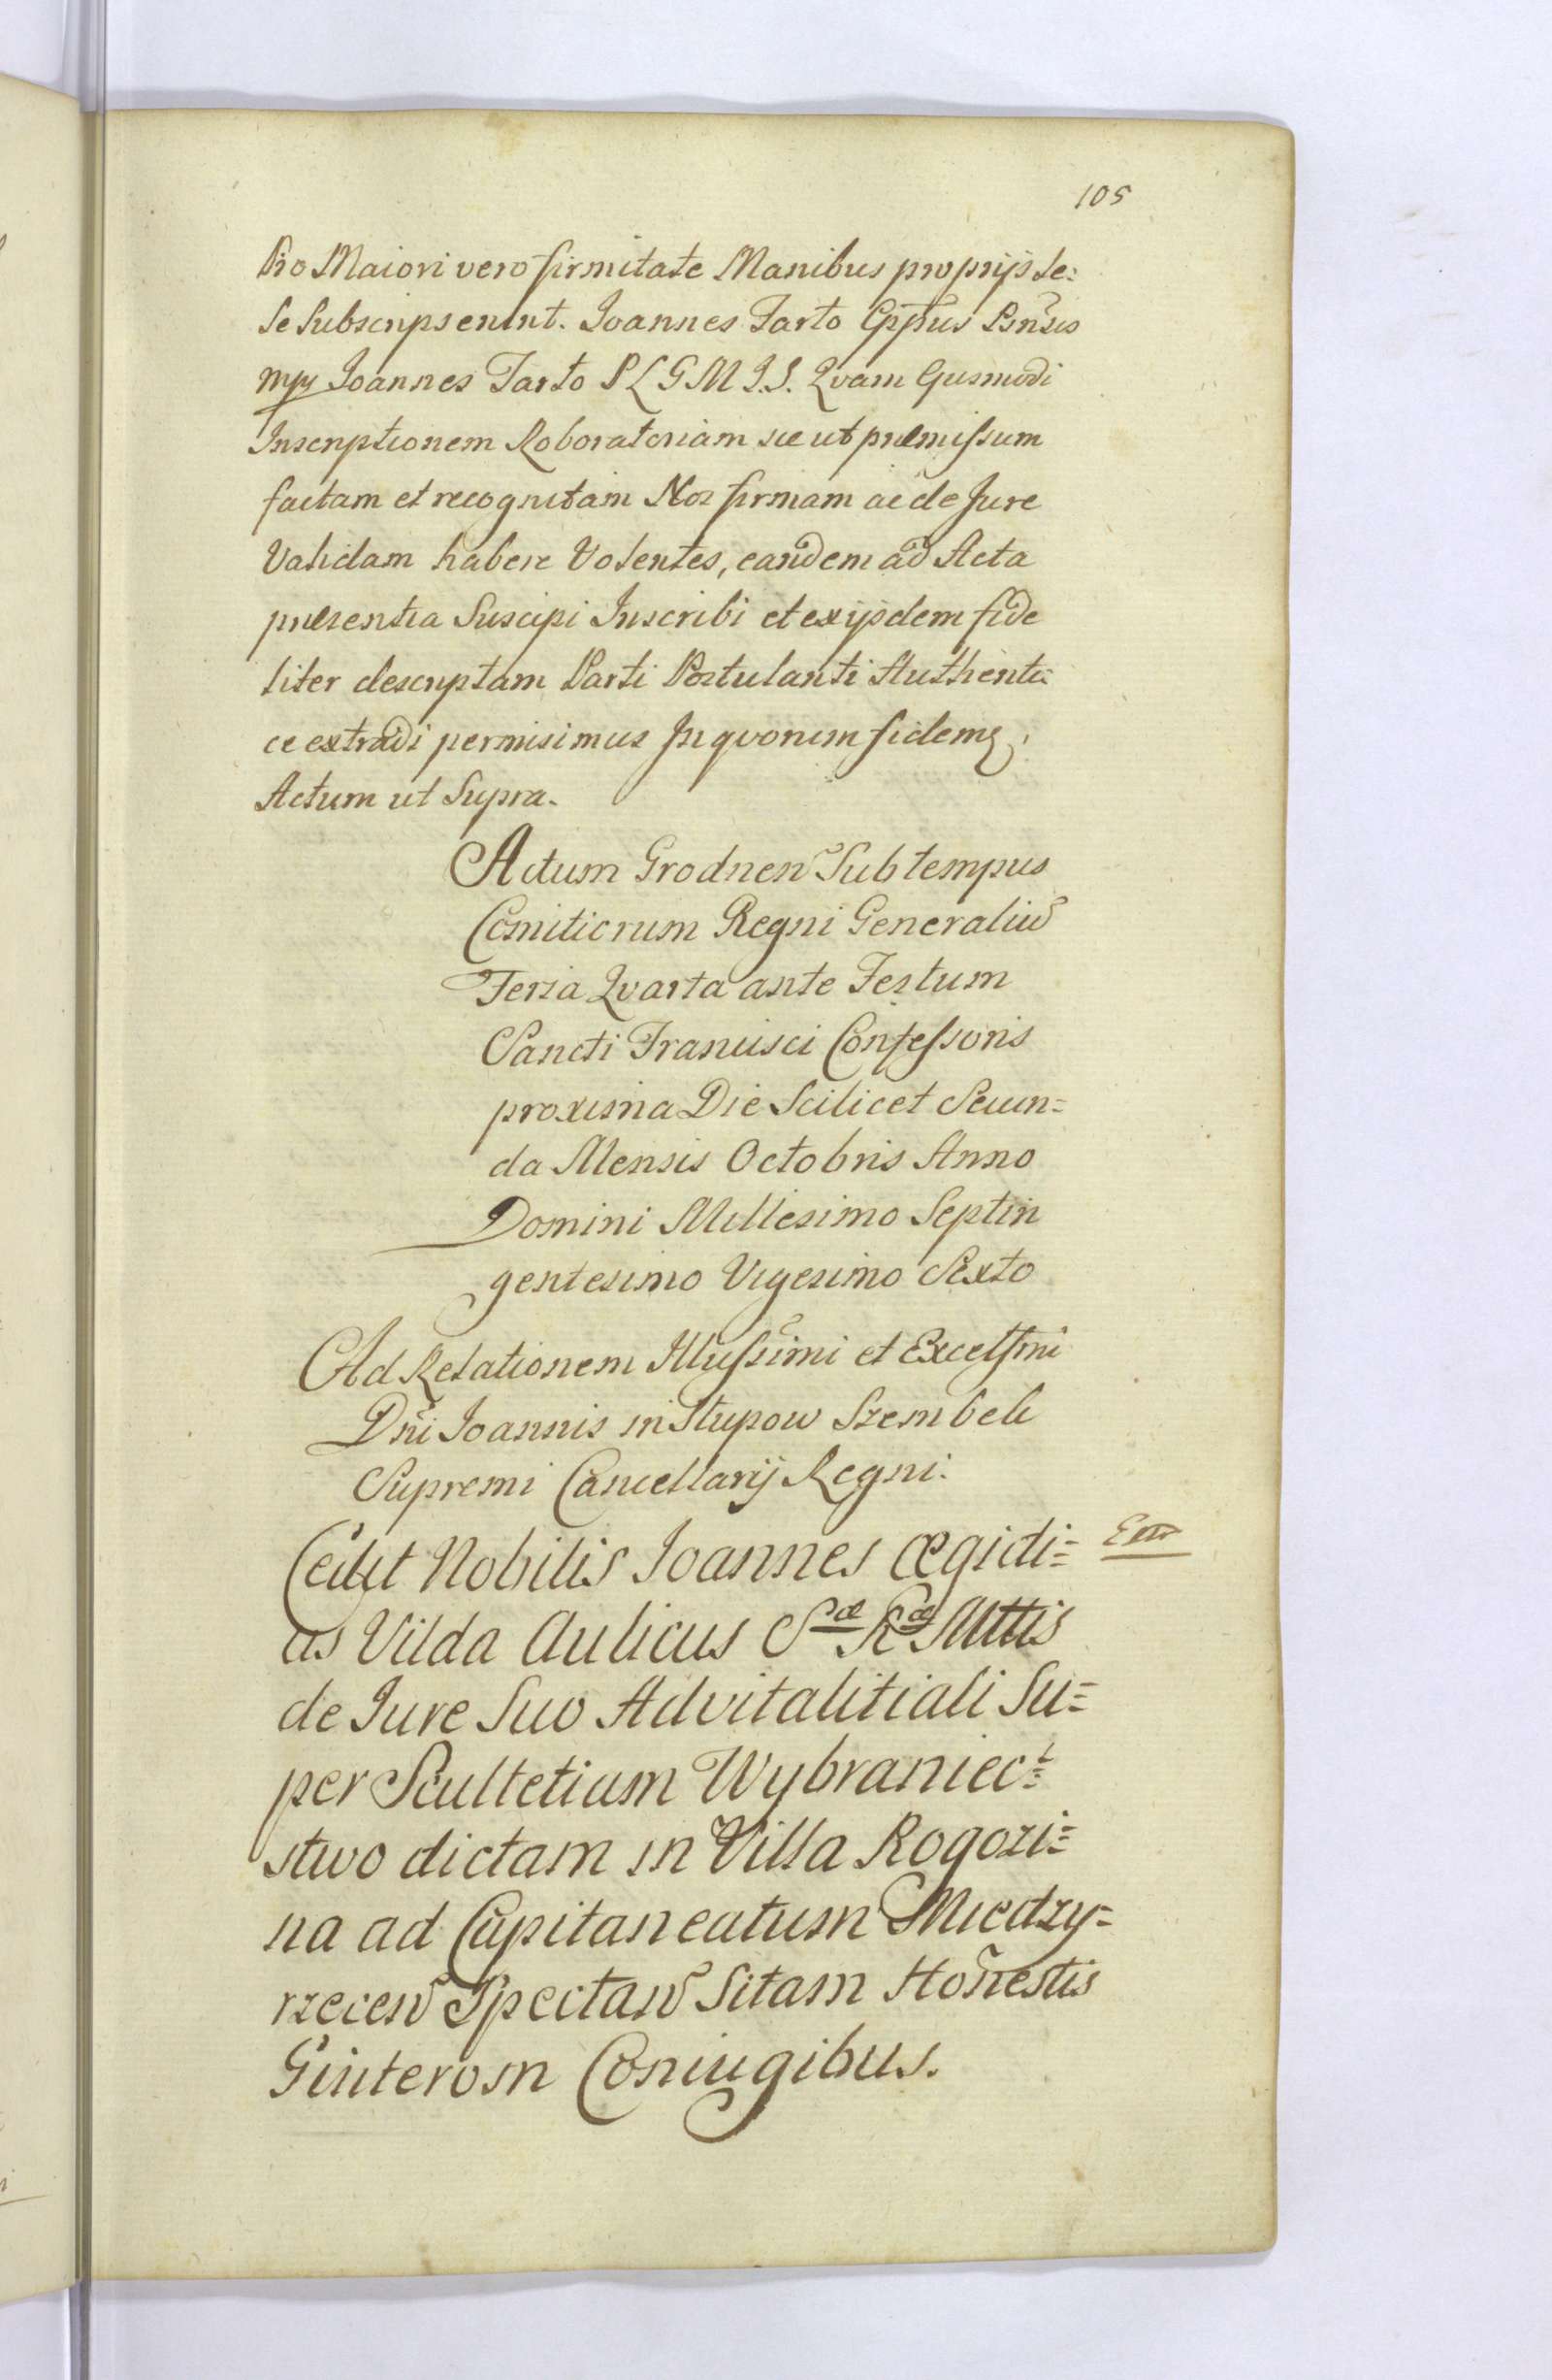 105
Pro Maiori vero firmitate Manibus proprijs se:
se Subscripserunt. Joannes Tarto Eppus Psnsis
mpp Joannes Tarto P L G M J.S. Qvam Ejusmodi
Inscriptionem Roboratoriam sic ut præmissum
factam et recognitam Nos firmam ac de Jure
Validam habere Volentes, eandem ad Acta
præsentia Suscipi Inscribi et ex ijsdem fide
liter descriptam Parti Postulanti Authenti=
ce extradi permisimus In qvorum fidemq;
Actum ut Supra.
Actum Grodnen Sub tempus
Comitiorum Regni Generaliu
Feria Qvarta ante Festum
Sancti Francisci Confessoris
proxima Die Scilicet Secun=
da Mensis Octobris Anno
Domini Millesimo Septin
gentesimo Vigesimo Sexto
Ad Relationem Illussimi et Excelsmi
Dni Joannis in Slupow Szembek
Supremi Cancellarij Regni.
Cedit Nobilis Joannes Ægidi=
us Vilda Aulicus Sæ Ræ Mttis
de Jure Suo Advitalitiali Su=
per Scultetiam Wybraniec=
stwo dictam in Villa Rogozi=
na ad Capitaneatum Miedzy=
rzecen Spectan Sitam Honestis
Ginterom Coniugibus.